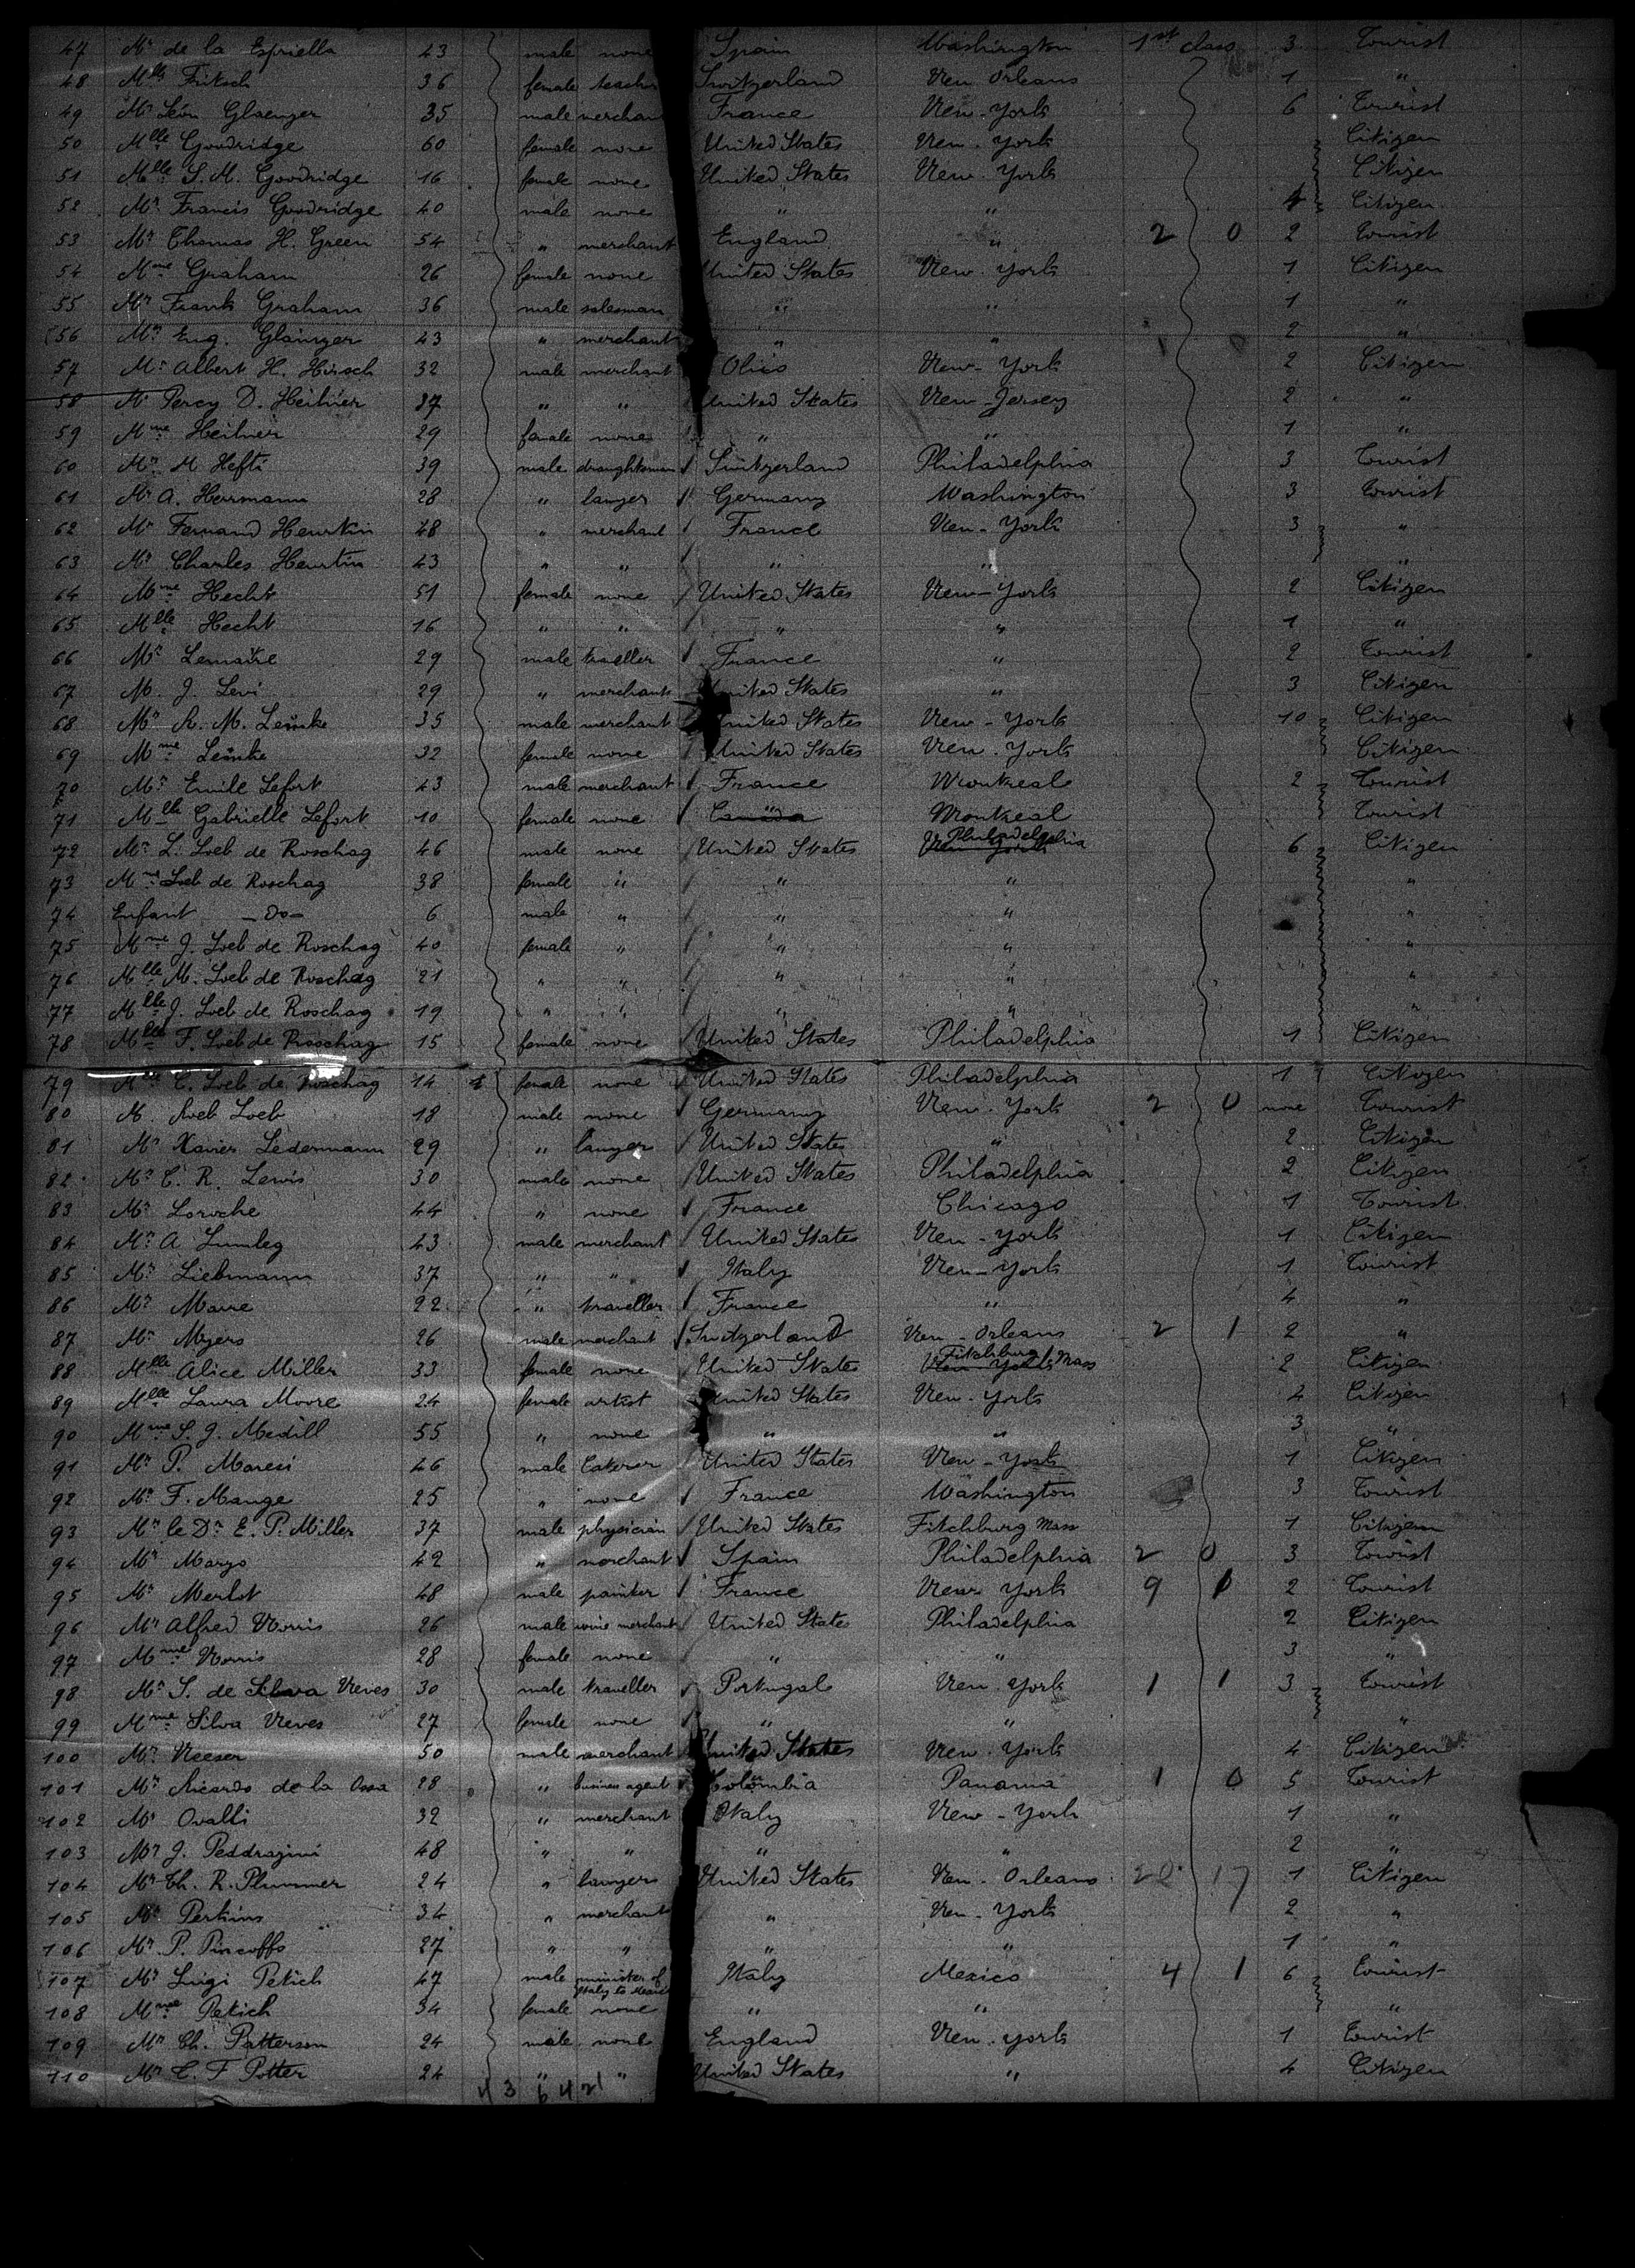 47 Mr de la Espriella 43 male none Spain Washington 1st class 3 Tourist
48 Mlle Fritsch 36 female teacher Switzerland New Orleans 1 "
49 Mr Léon Glaenzer 35 male merchant France New-York 6 Tourist
50 Mlle Goodridge 60 female none United States New-York Citizen
51 Mlle S. M. Goodridge 16 female none United States New-York Citizen
52 Mr Francis Goodridge 40 male none " " 4 Citizen
53 Mr Thomas H. Green 54 " merchant England " 2 0 2 Tourist
54 Mme Graham 26 female none United States New-York 1 Citizen
55 Mr Frank Graham 36 male salesman " " 1 "
56 Mr Eug. Glainzer 43 " merchant " " 2 "
57 Mr Albert H. Hirsch 32 male merchant Ohio New-York 2 Citizen
58 Mr Percy D. Heilner 37 " " United States New-Jersey 2 "
59 Mme Heilner 29 female none " " 1 "
60 Mr M Hefti 39 male draughtsman Switzerland Philadelphia 3 Tourist
61 Mr A. Herrmann 28 " lawyer Germany Washington 3 Tourist
62 Mr Fernand Heurtin 48 " merchant France New-York 3 "
63 Mr Charles Heurtin 43 " " " " "
64 Mme Hecht 51 female none United States New-York 2 Citizen
65 Mlle Hecht 16 " " " " 1 "
66 Mr Lemaire 29 male traveller France " 2 Tourist
67 M. J. Levi 29 " merchant United States " 3 Citizen
68 Mr A. M. Lemke 35 male merchant United States New-York 10 Citizen
69 Mme Lemke 32 female none United States New-York Citizen
70 Mr Emile Lefort 43 male merchant France Montreal 2 Tourist
71 Mlle Gabrielle Lefort 10 female none Canada Montreal Tourist
72 Mr L. Loeb de Roschag 46 male none United States New York Philadelphia 6 Citizen
73 Mme Loeb de Roschag 38 female " " " "
74 Enfant -do- 6 male " " " "
75 Mme J. Loeb de Roschag 40 female " " " "
76 Mlle M. Loeb de Roschag 21 " " " " "
77 Mlle J. Loeb de Roschag 19 " " " " "
78 Mlle F. Loeb de Roschag 15 female none United States Philadelphia 1 Citizen
79 Mlle C. Loeb de Roschag 14 female none United States Philadelphia 1 Citizen
80 M. Loeb 18 male none Germany New-York 2 0 none Tourist
81 Mr Xavier Ledermann 29 " lawyer United States " 2 Citizen
82 Mr C. R. Lewis 30 male none United States Philadelphia 2 Citizen
83 Mr Loroche 44 " none France Chicago 1 Tourist
84 Mr A Lumley 43 male merchant United States New-York 1 Citizen
85 Mr Liebmann 37 " " Italy New-York 1 Tourist
86 Mr Marre 22 " traveller France " 4 "
87 Mr Myers 26 male merchant Switzerland New-Orleans 2 1 2 "
88 Mlle Alice Miller 33 female none United States New York Fitchburg Mass 2 Citizen
89 Mlle Laura Moore 24 female artist United States New-York 4 Citizen
90 Mme S. J. Medill 55 " none " " 3 "
91 Mr P. Maresi 46 male caterer United States New-York 1 Citizen
92 Mr F. Mange 25 " none France Washington 3 Tourist
93 Mr le Dr E. P. Miller 37 male physician United States Fitchburg Mass 1 Citizen
94 Mr Marzo 42 " merchant Spain Philadelphia 2 0 3 Tourist
95 Mr Merlot 48 male painter France New York 9 2 Tourist
96 Mr Alfred Norris 26 male wine merchant United States Philadelphia 2 Citizen
97 Mme Norris 28 female none " " 3 "
98 Mr S. de Silva Neves 30 male traveller Portugal New-York 1 1 3 Tourist
99 Mme Silva Neves 27 female none " " "
100 Mr Neeser 50 male merchant United States New-York 4 Citizen
101 Mr Ricardo de la Ossa 28 " business agent Colombia Panama 1 0 5 Tourist
102 Mr Ovalli 32 " merchant Italy New-York 1 "
103 Mr J. Peddrazini 48 " " " " 2 "
104 Mr Th. R. Plummer 24 " lawyer United States New-Orleans 17 1 Citizen
105 Mr Perkins 34 " merchant " New-York 2 "
106 Mr P. Pincoffs 27 " " " " 1 "
107 Mr Luigi Petich 47 male minister of Italy to Mexico Italy Mexico 4 1 6 Tourist
108 Mme Petich 34 female none " " "
109 Mr Ch. Patterson 24 male none England New-York 1 Tourist
110 Mr C. F Potter 24 " " United States " 4 Citizen